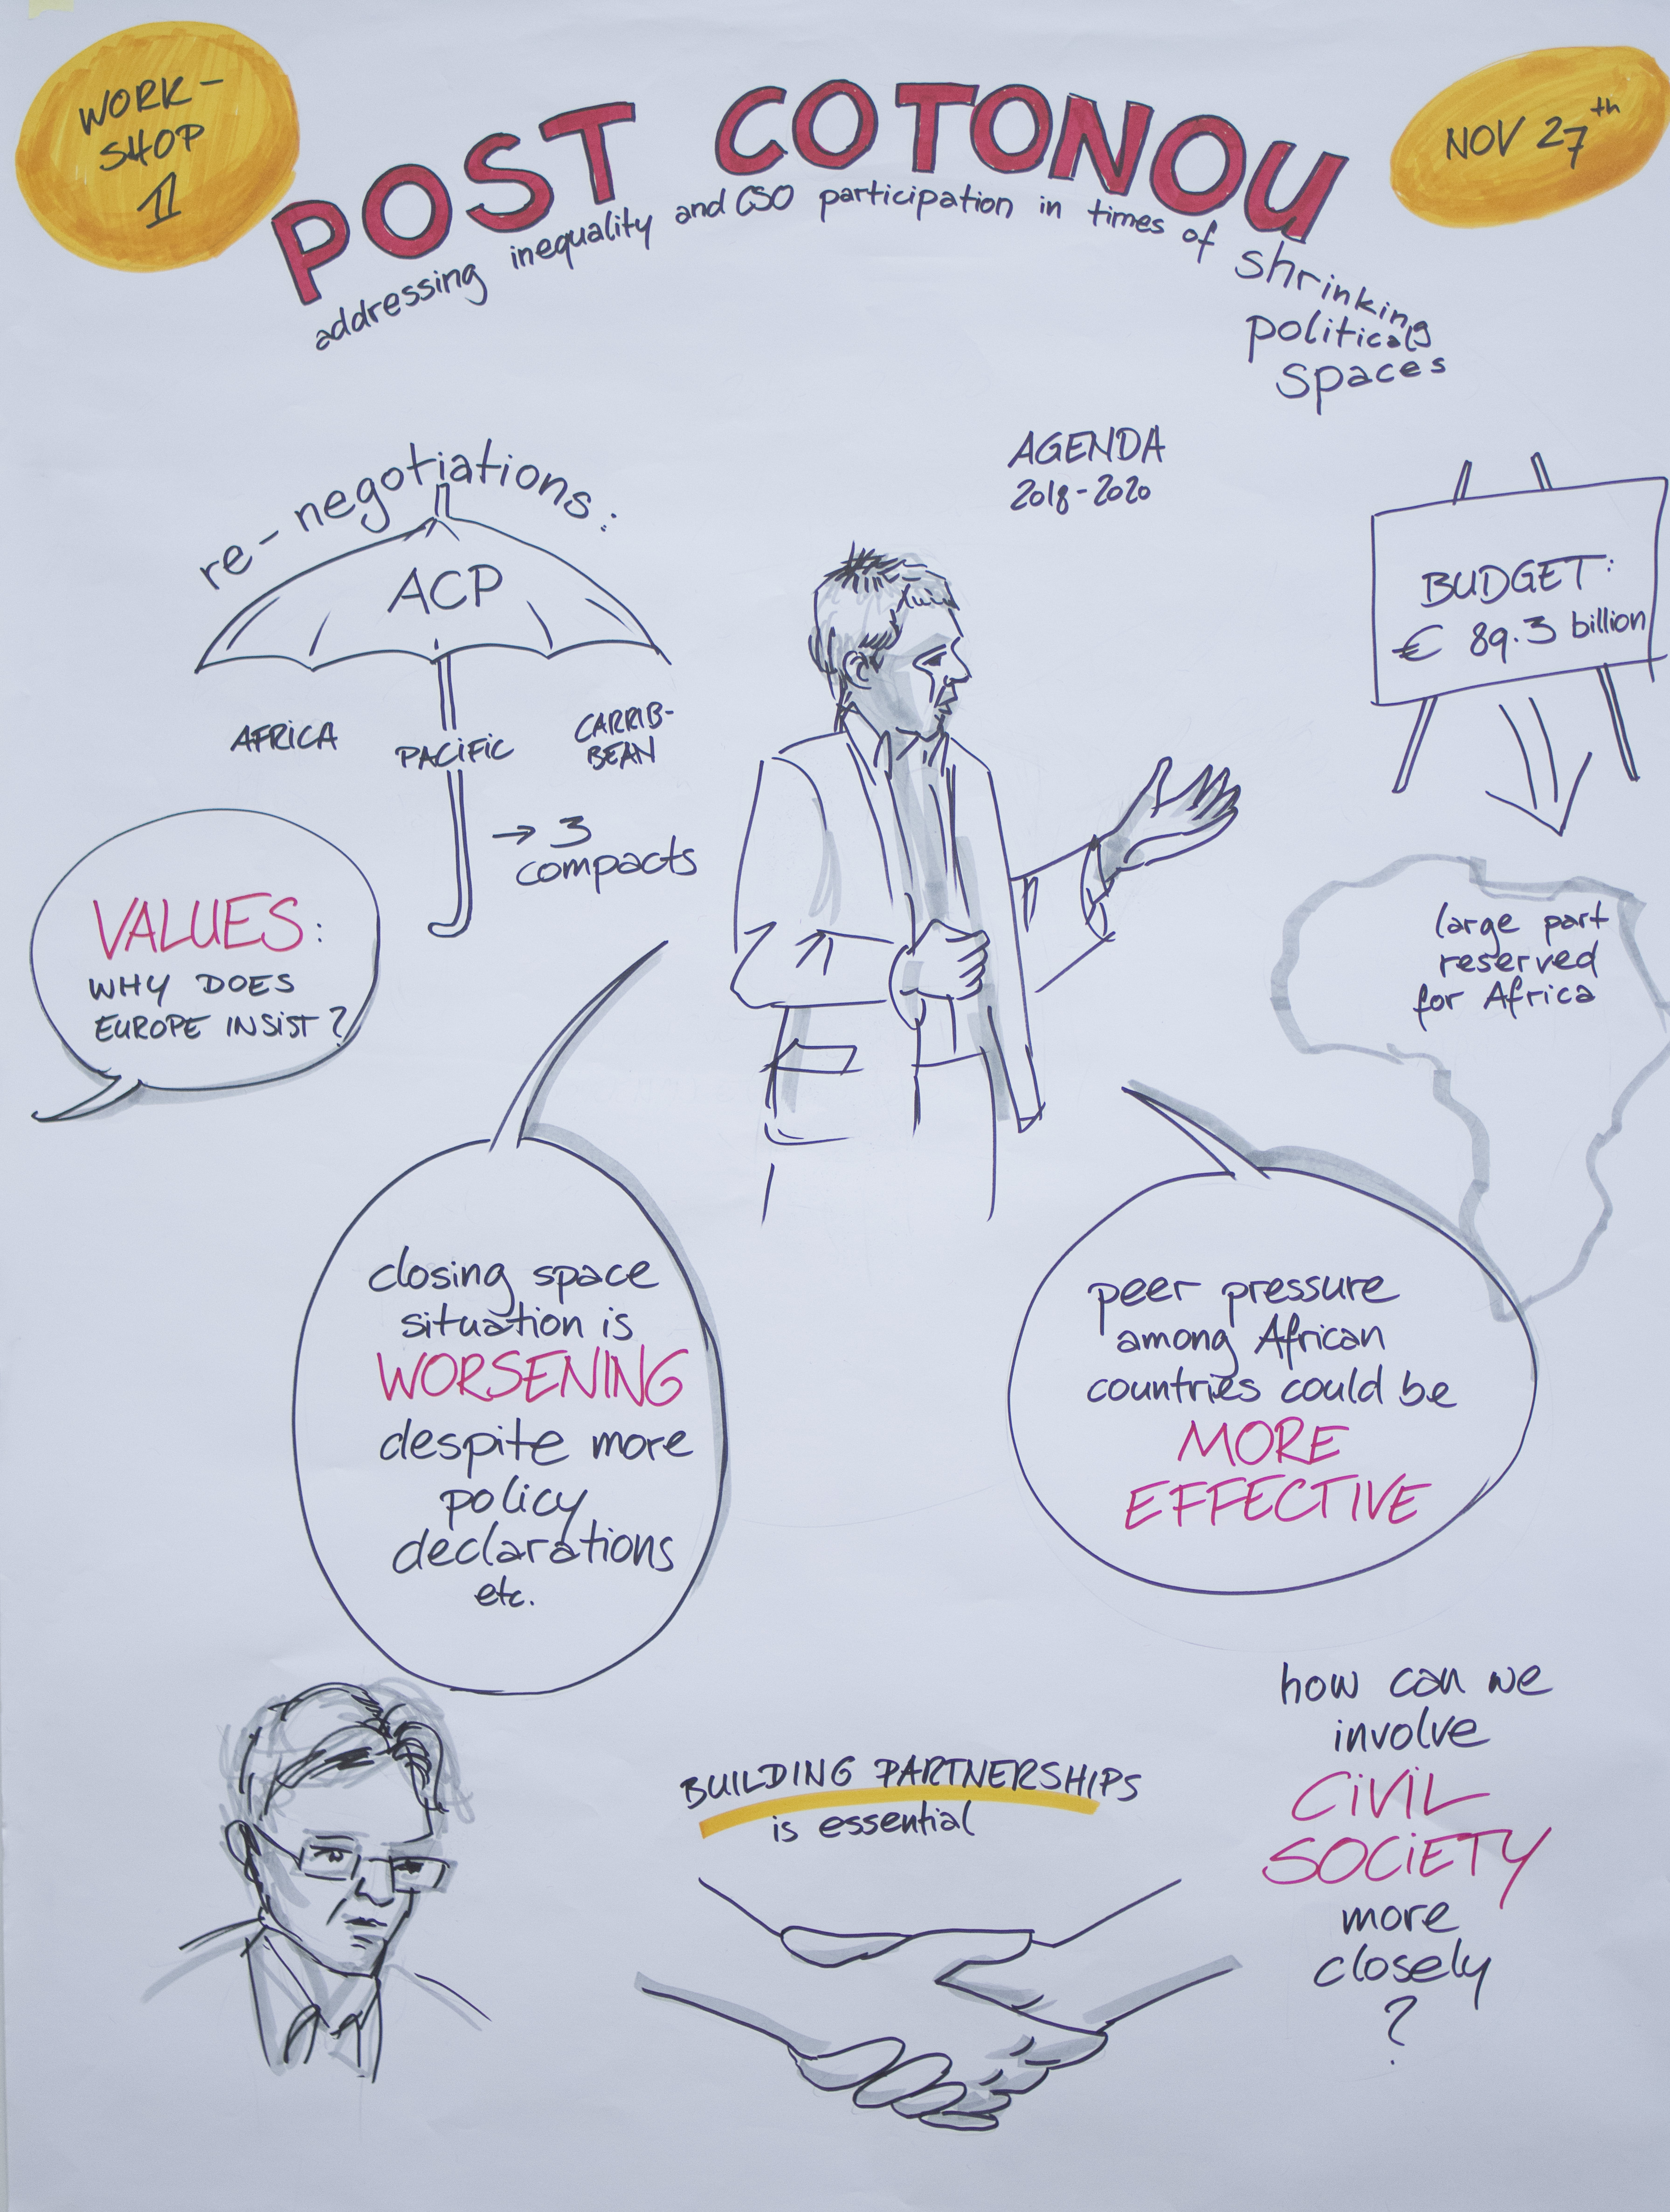 WORK-
SHOP
1
POST COTONOU
NOV 27th
addressing inequality and CSO participation in times of shrinking
political
spaces
re-negotiations:
ACP
AFRICA
PACIFIC
CARRIB-
BEAN
→ 3
compacts
AGENDA
2018-2020
BUDGET:
€ 89.3 billion
large part
reserved
for Africa
VALUES:
WHY DOES
EUROPE INSIST?
closing space
situation is
WORSENING
despite more
policy
declarations
etc.
peer pressure
among African
countries could be
MORE
EFFECTIVE
BUILDING PARTNERSHIPS
is essential
how can we
involve
CIVIL
SOCIETY
more
closely
?